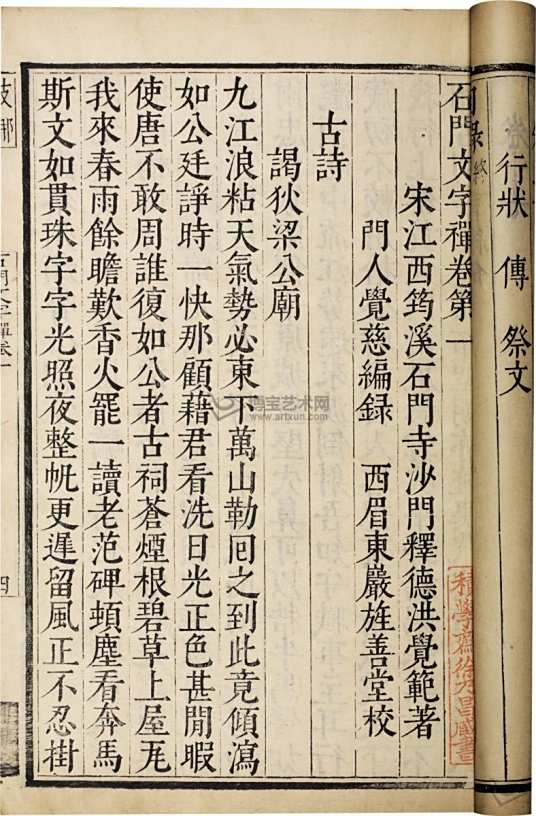 行狀 傳 祭文
石門文字禪卷第一
宋江西筠溪石門寺沙門釋德洪覺範著
門人覺慈編録 西眉東巖旌善堂校
古詩
謁狄梁公廟
九江浪粘天氣勢必東下萬山勒囘之到此竟傾瀉
如公廷諍時一快那顧藉君看洗日光正色甚閒暇
使唐不敢周誰復如公者古祠蒼煙根碧草上屋瓦
我來春雨餘瞻歎香火罷一讀老范碑頓塵看奔馬
斯文如貫珠字字光照夜整帆更遲留風正不忍掛
支那
石門文字禪卷一
四
積學齋徐乃昌藏書
博宝艺术网
www.artxun.com